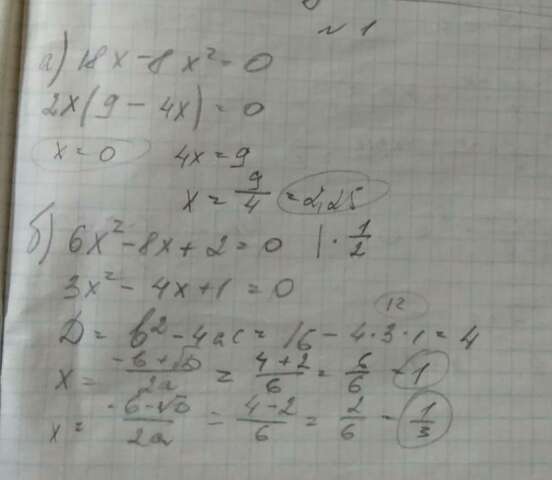 № 1
а) 18x - 8x² = 0
2x(9 - 4x) = 0
x = 0 4x = 9
x = 9/4 = 2,25
б) 6x² - 8x + 2 = 0 | · 1/2
3x² - 4x + 1 = 0
12
D = b² - 4ac = 16 - 4·3·1 = 4
x = (-b + √D)/2a = (4+2)/6 = 6/6 = 1
x = (-b - √D)/2a = (4-2)/6 = 2/6 = 1/3